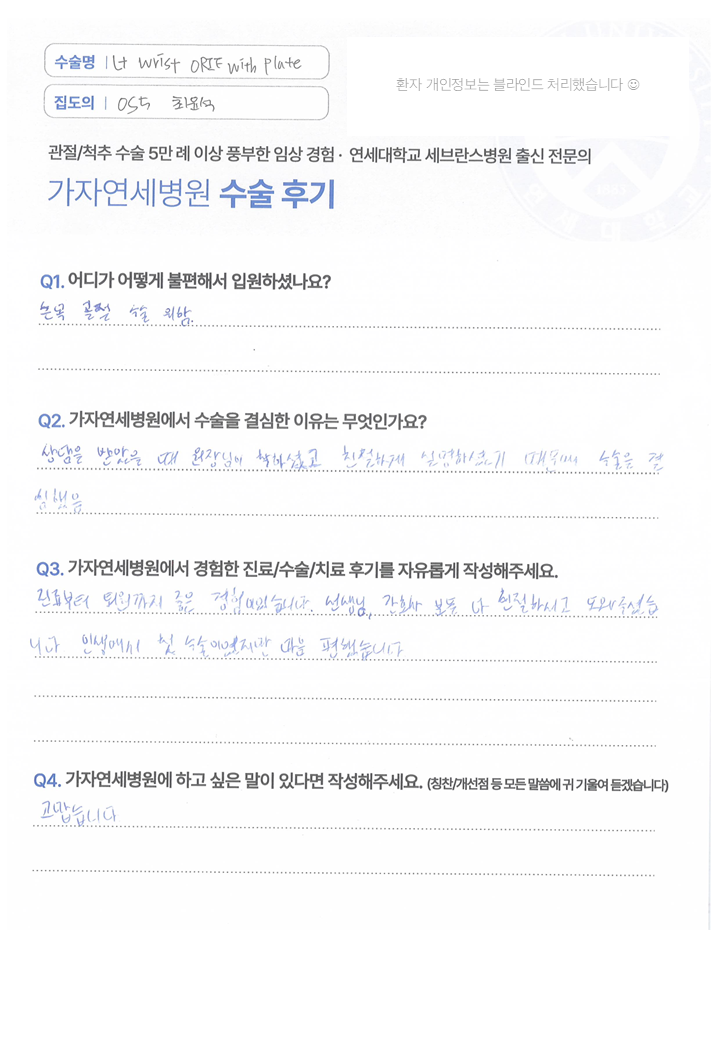 수술명 Lt wrist ORIF with plate
집도의 OS5 최윤석
환자 개인정보는 블라인드 처리했습니다 ☺
관절/척추 수술 5만 례 이상 풍부한 임상 경험 · 연세대학교 세브란스병원 출신 전문의
가자연세병원 수술 후기
Q1. 어디가 어떻게 불편해서 입원하셨나요?
손목 골절 수술 위함.
Q2. 가자연세병원에서 수술을 결심한 이유는 무엇인가요?
상담을 받았을 때 원장님이 착하셨고 친절하게 설명하셨기 때문에 수술을 결
심했음
Q3. 가자연세병원에서 경험한 진료/수술/치료 후기를 자유롭게 작성해주세요.
진료부터 퇴원까지 좋은 경험이었습니다. 선생님, 간호사 보두 다 친절하시고 도와주셨습
니다 인생에서 첫 수술이였지만 마음 편했습니다
Q4. 가자연세병원에 하고 싶은 말이 있다면 작성해주세요. (칭찬/개선점 등 모든 말씀에 귀 기울여 듣겠습니다)
고맙습니다